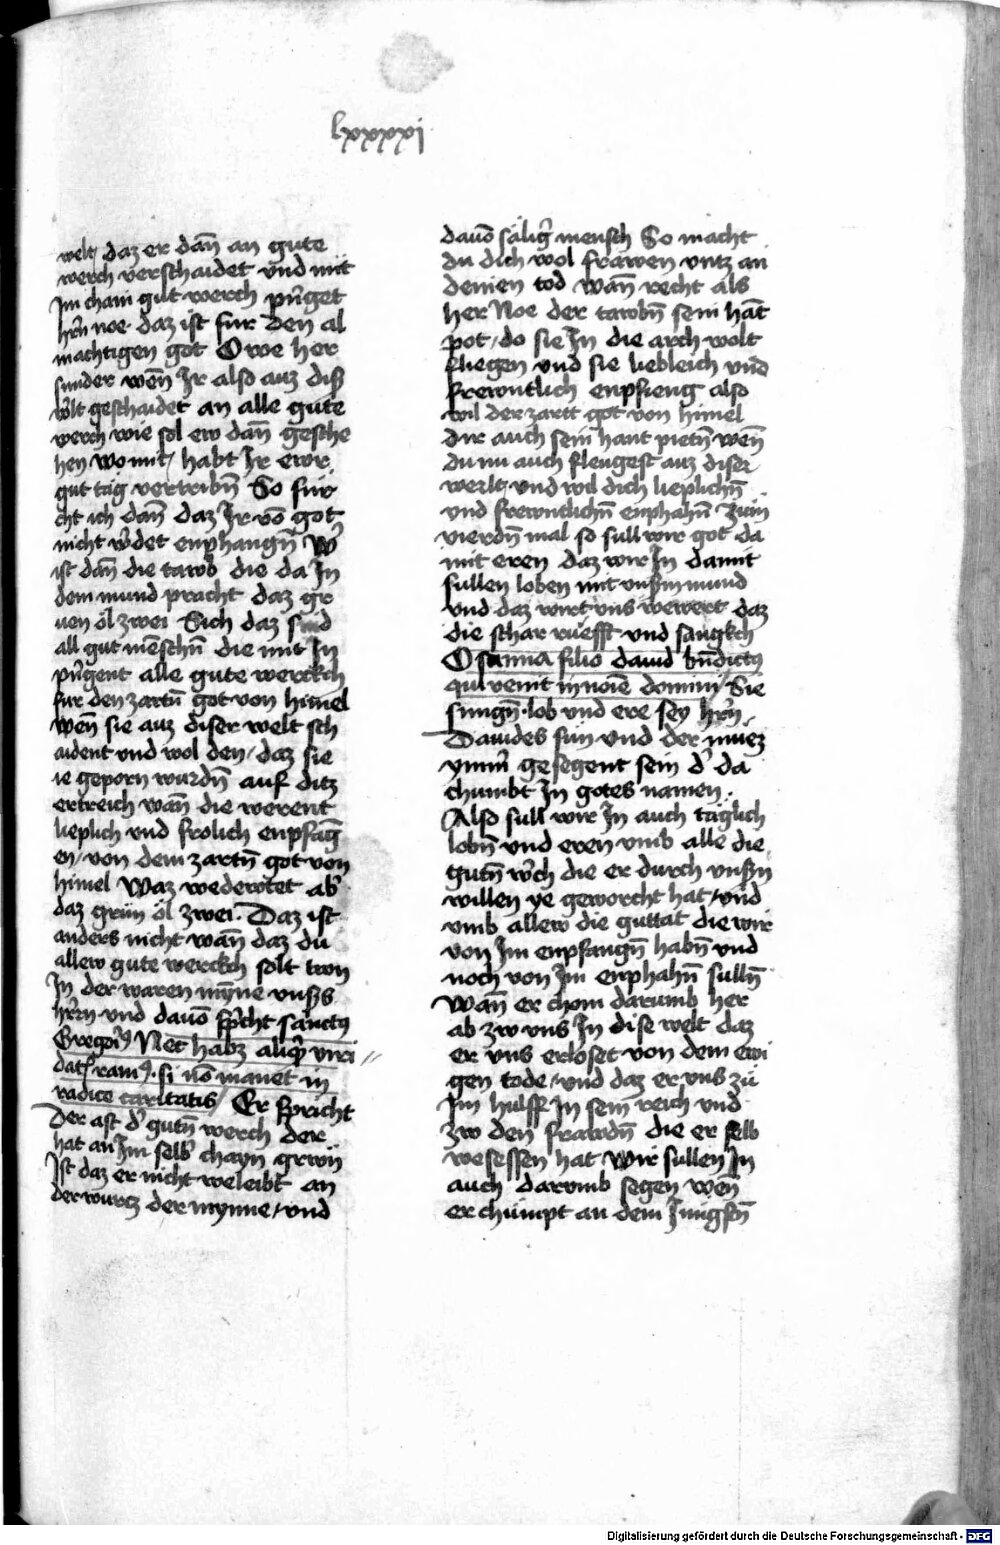 lxxxxj
welt daz er dan̄ an gute
werch verschaidet vnd mit
Im chain gut werch pr̄nget
hr̄n noe. daz ist fur den al
machtigen got O we her
sunder wen̄ Ir also auz diß
w̉lt geschaidet an alle gute
werch wie sol ew dan̄ gesche
hen wo mit / habt Ir ewr
gut tag vertribn̄ So für
cht ich dan̄ daz Ir vō got
nicht w̉det enphangn̄ W̉
ist dan̄ die tawb die da In
dem mund pracht daz gr
uen öl zwei Sich daz sind
all gut mēschn̄ die mit In
pr̄gent alle gute werckch
fur den zartn̄ got von himel
wen̄ sie auz diser welt sch
aident vnd wol den / daz sie
ie geporn wurdn̄ auf ditz
ertreich wan̄ die werent
lieplich vnd frolich enpfāg
en / von dem zartn̄ got von
himel Waz wedewtet ab̉
daz grün öl zwei. Daz ist
anders nicht wan̄ daz du
allew gute werckch solt tvon
In der waren myn̄e vnßs
hr̄rn vnd dauō sp̉cht sanctꝰ
Gregoriꝰ Nec habz aliqd̉ viri //
datꝭ ramꝰ. si nō manet in
radice caritatis / Er spricht
Der ast d̉ gutn̄ werch der
hat an Im selb̉ chayn grwn
Ist daz er nicht weleibt an
der wurcz der mynne / vnd
dauō sälig̉ mensch So macht
du dich wol frawen vntz an
deinen tod wan̄ recht als
her Noe der tawbn̄ sein hāt
pot / do sie In die arch wolt
fliegen vnd sie liebleich vnd
frewntlich enpfieng also
wil der zartt got von himel
dir auch sein hant pietn̄ wen̄
du nu auch fleugest auz diser
werlt / vnd wil dich lieplichn̄
vnd frewntlichn̄ enphahn̄ Zum
vierdn̄ mal so sull wir got da
mit eren daz wir In damit
sullen loben mit vnßm mund
vnd daz wirt vns wewert daz
die schar ruefft vnd sangkch
Osanna filio dauid bn̄dictꝰ
qui venit in noīe domini / Sie
sungn̄. lob vnd ere sey hr̄n
Dauides sun vnd der muez
ymm̉ gesegent sein d̉ da
chumbt In gotes namen.
Also sull wir In auch täglich
lobn̄ vnd eren vmb alle die
gutn̄ w̉ch die er durch vnßn
willen ye geworcht hat / vnd
vmb allew die guttat die wir
von Im enpfangn̄ habn̄ vnd
noch von Im enphahn̄ sulln̄
Wan̄ er chom darumb her
ab zw vns In dise welt daz
er vns erloset von dem ewi
gen tode / vnd daz er vns zü
Im hulff In sein reich vnd
zw den frawdn̄ die er selb
wesessen hat Wir sullen In
auch darumb segen wen̄
er chumpt an dem Jungsn̄
Digitalisierung gefördert durch die Deutsche Forschungsgemeinschaft - DFG